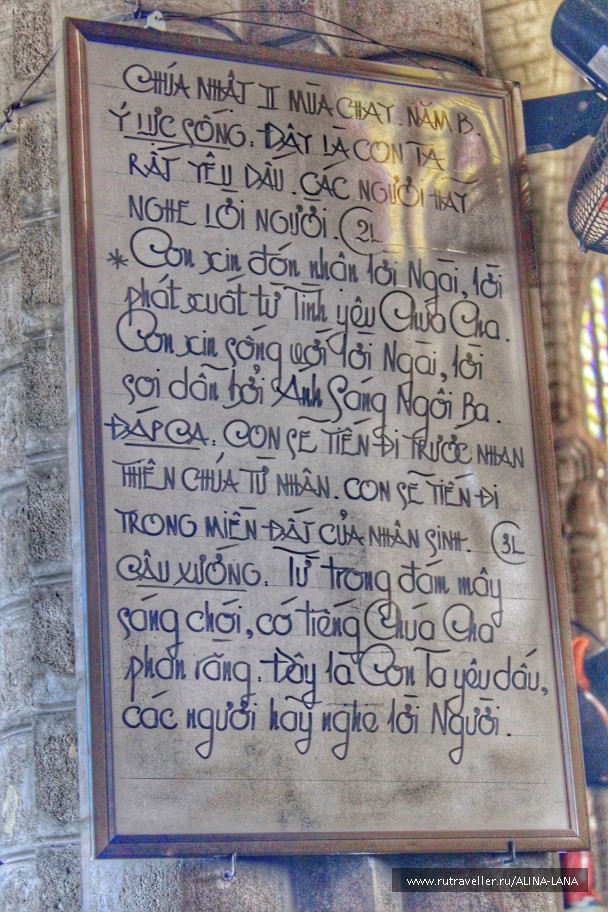 CHÚA NHẬT II MÙA CHAY. NĂM B.
Ý LỰC SỐNG: ĐÂY LÀ CON TA
RẤT YÊU DẤU. CÁC NGƯỜI HÃY
NGHE LỜI NGƯỜI. 2L
* Con xin đón nhận lời Ngài, lời
phát xuất từ Tình yêu Chúa Cha.
Con xin sống với lời Ngài, lời
soi dẫn bởi Ánh Sáng Ngôi Ba.
ĐÁP CA: CON SẼ TIẾN ĐI TRƯỚC NHAN
THIÊN CHÚA TỪ NHÂN. CON SẼ TIẾN ĐI
TRONG MIỀN ĐẤT CỦA NHÂN SINH. 3L
CÂU XƯỚNG: Từ trong đám mây
sáng chói, có tiếng Chúa Cha
phán rằng: Đây là Con Ta yêu dấu,
các người hãy nghe lời Người.
www.rutraveller.ru/ALINA-LANA